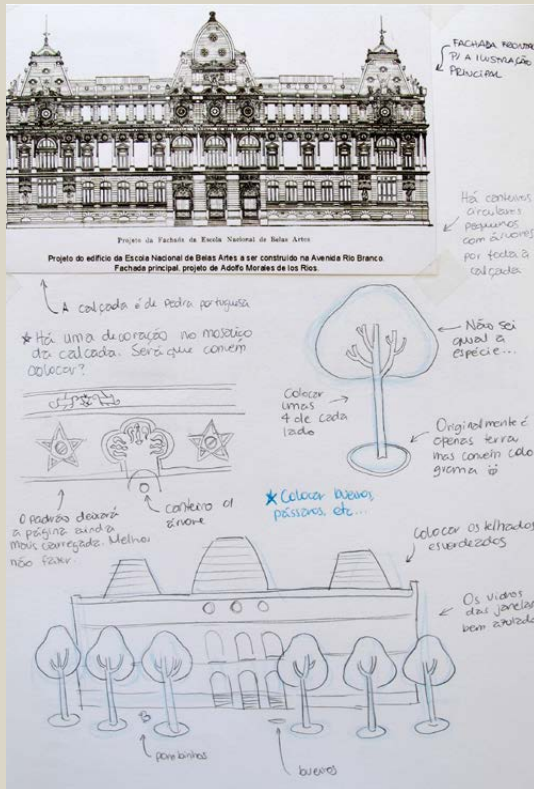 FACHADA FRONTAL
P/ A ILUSTRAÇÃO
PRINCIPAL
Projeto da Fachada da Escola Nacional de Belas Artes
Projeto do edifício da Escola Nacional de Belas Artes a ser construído na Avenida Rio Branco.
Fachada principal, projeto de Adolfo Morales de los Rios.
Há canteiros
circulares
pequenos
com árvores
por toda a
calçada
A calçada é de Pedra portuguesa
* Há uma decoração no mosaico
da calçada. Será que convém
colocar?
Não sei
qual a
espécie...
Colocar
umas
4 de cada
lado
Originalmente é
apenas terra
mas convém colo
grama
O padrão deixará
a página ainda
mais carregada. Melhor
não fazer.
canteiro c/
árvore
* Colocar bueiros,
pássaros, etc...
Colocar os telhados
esverdeados
Os vidros
das janelas
bem azulados
pombinhos
bueiros